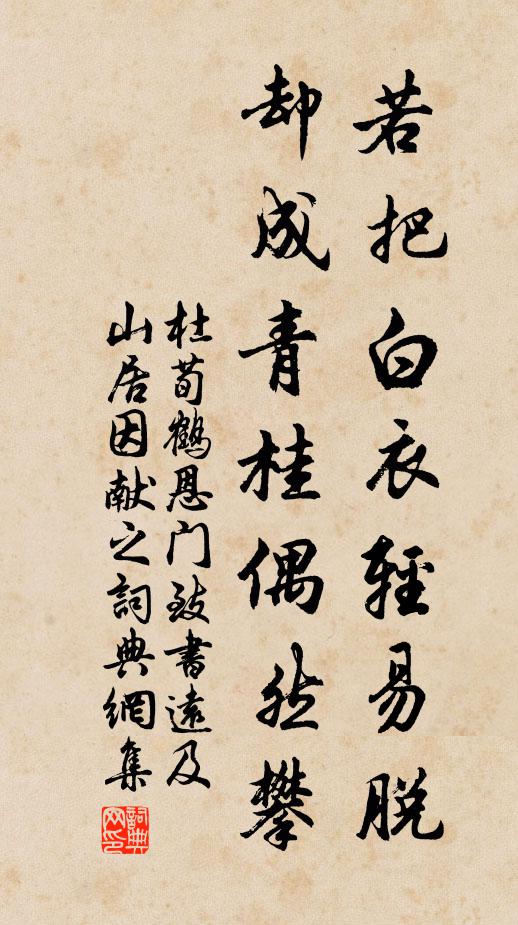 若把白衣輕易脱
却成青桂偶然攀
杜荀鶴恩门致書遠及
山居因献之詞典網集
詞典
网印